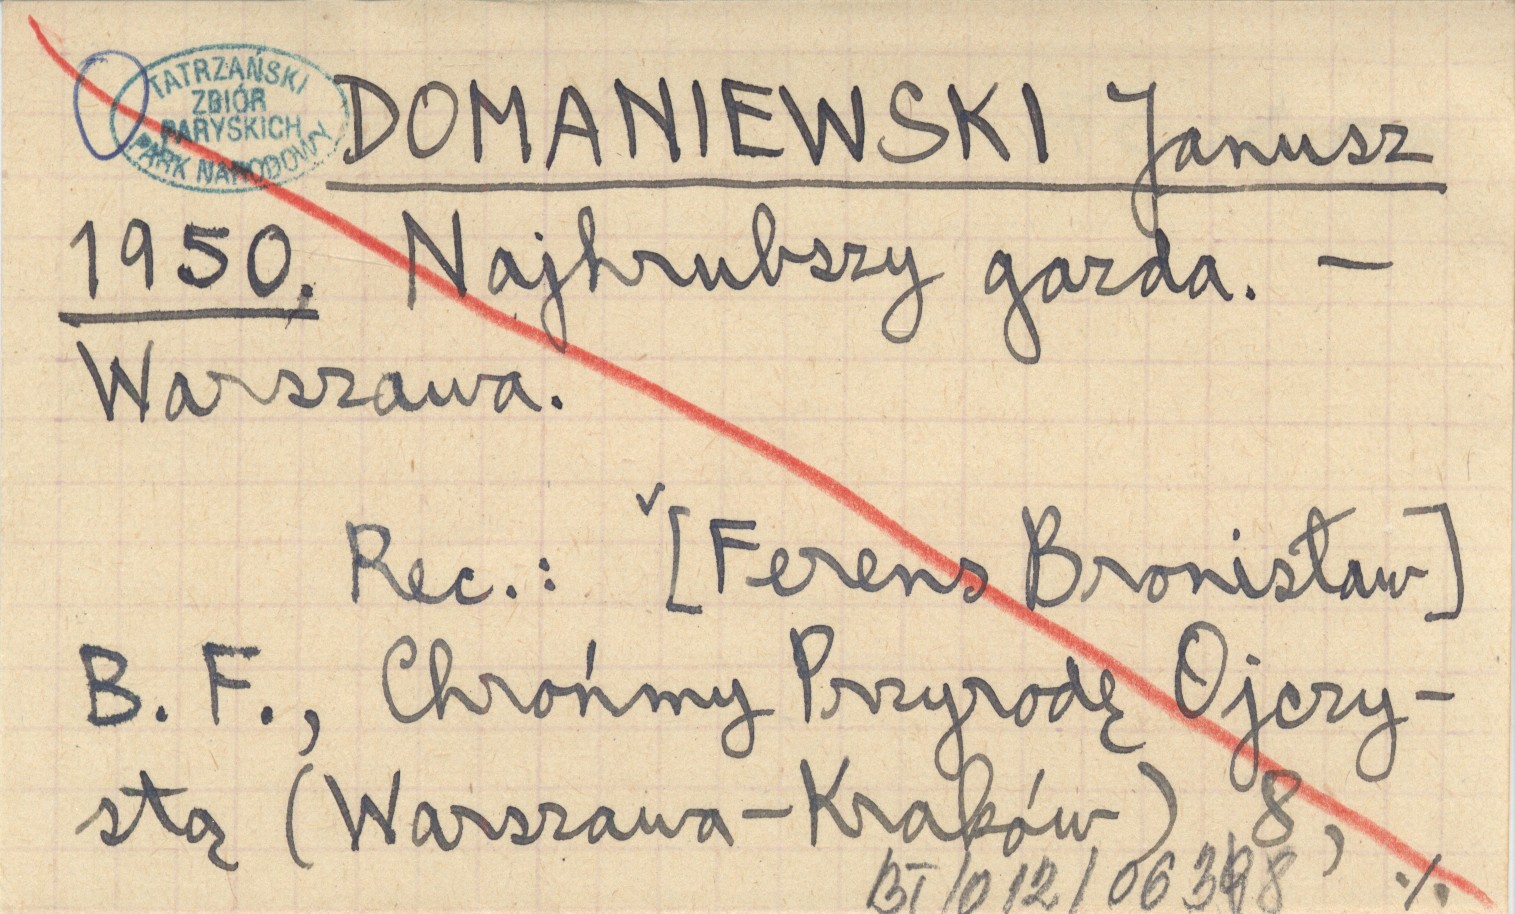 TATRZAŃSKI
ZBIÓR
PARYSKICH
PARK NARODOWY
DOMANIEWSKI Janusz
1950. Najhrubszy gazda. —
Warszawa.
Rec.: [Ferens Bronisław]
B. F., Chrońmy Przyrodę Ojczy-
stą (Warszawa-Kraków) 8,
BT/012/06398
./.